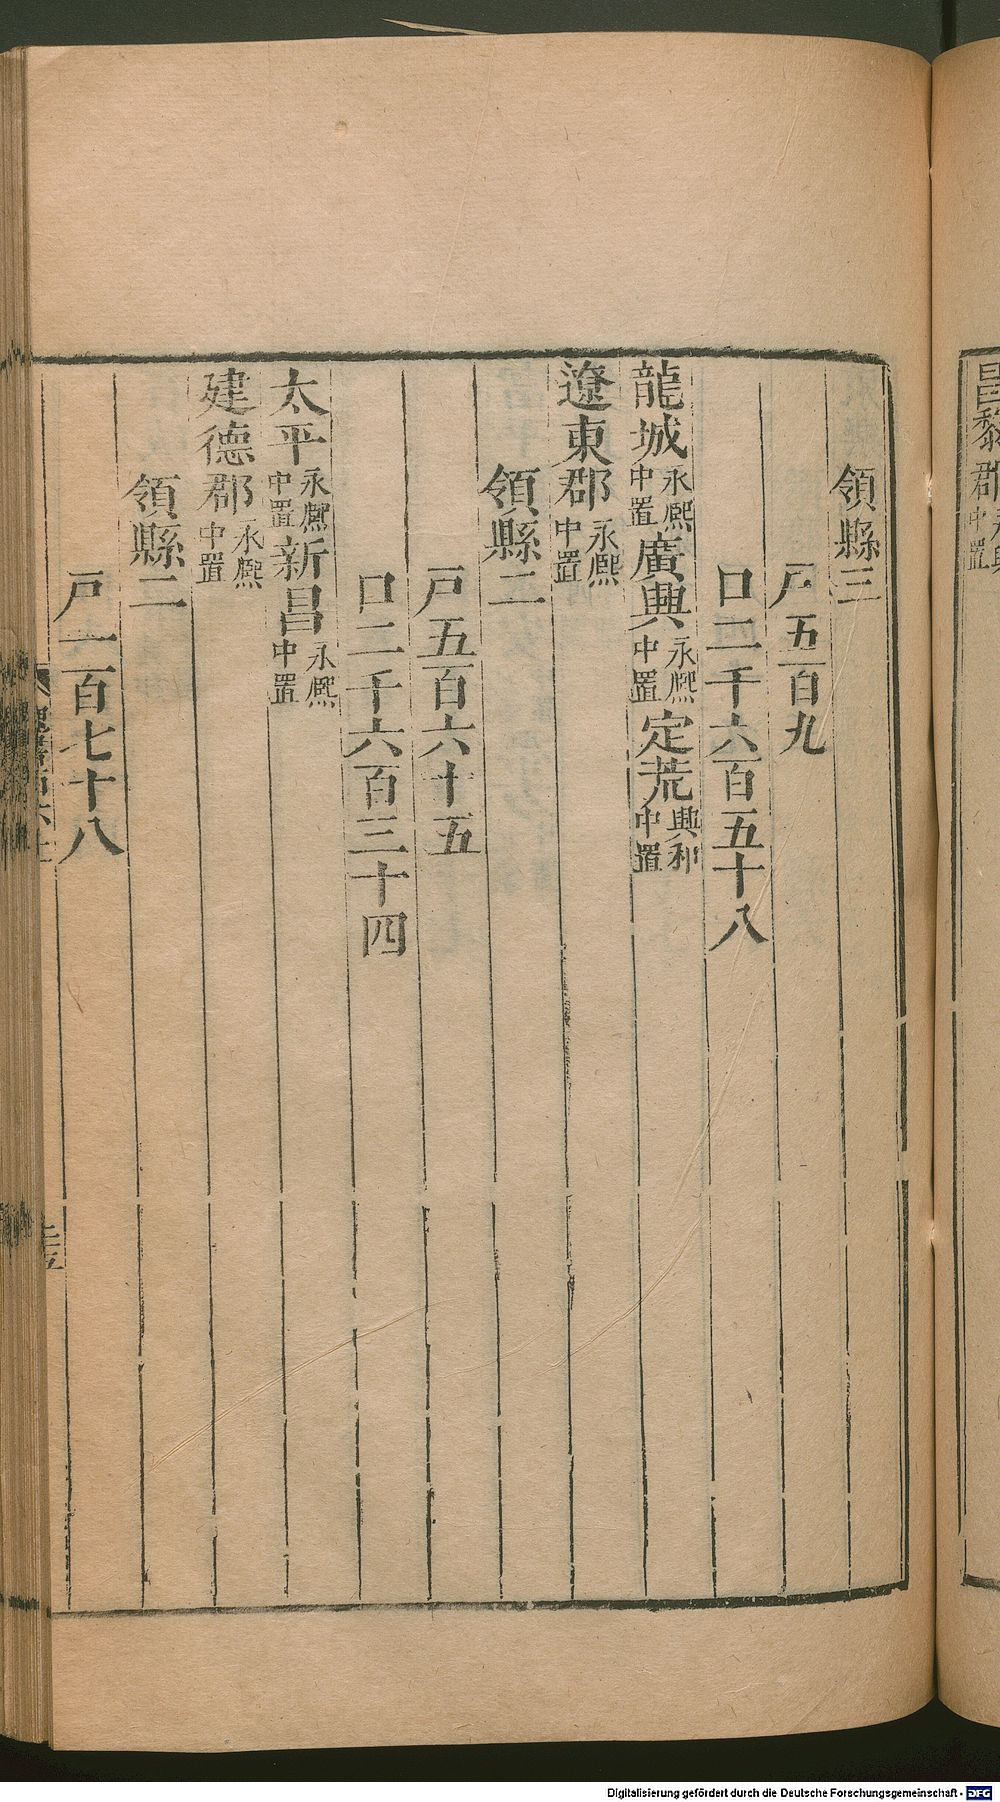 昌黎郡永興中置
領縣三
戸五百九
口二千六百五十八
龍城永熙中置廣興永熙中置定荒興和中置
遼東郡永熙中置
領縣二
戸五百六十五
口二千六百三十四
太平永熙中置新昌永熙中置
建德郡永熙中置
領縣二
戸一百七十八
Digitalisierung gefördert durch die Deutsche Forschungsgemeinschaft - DFG